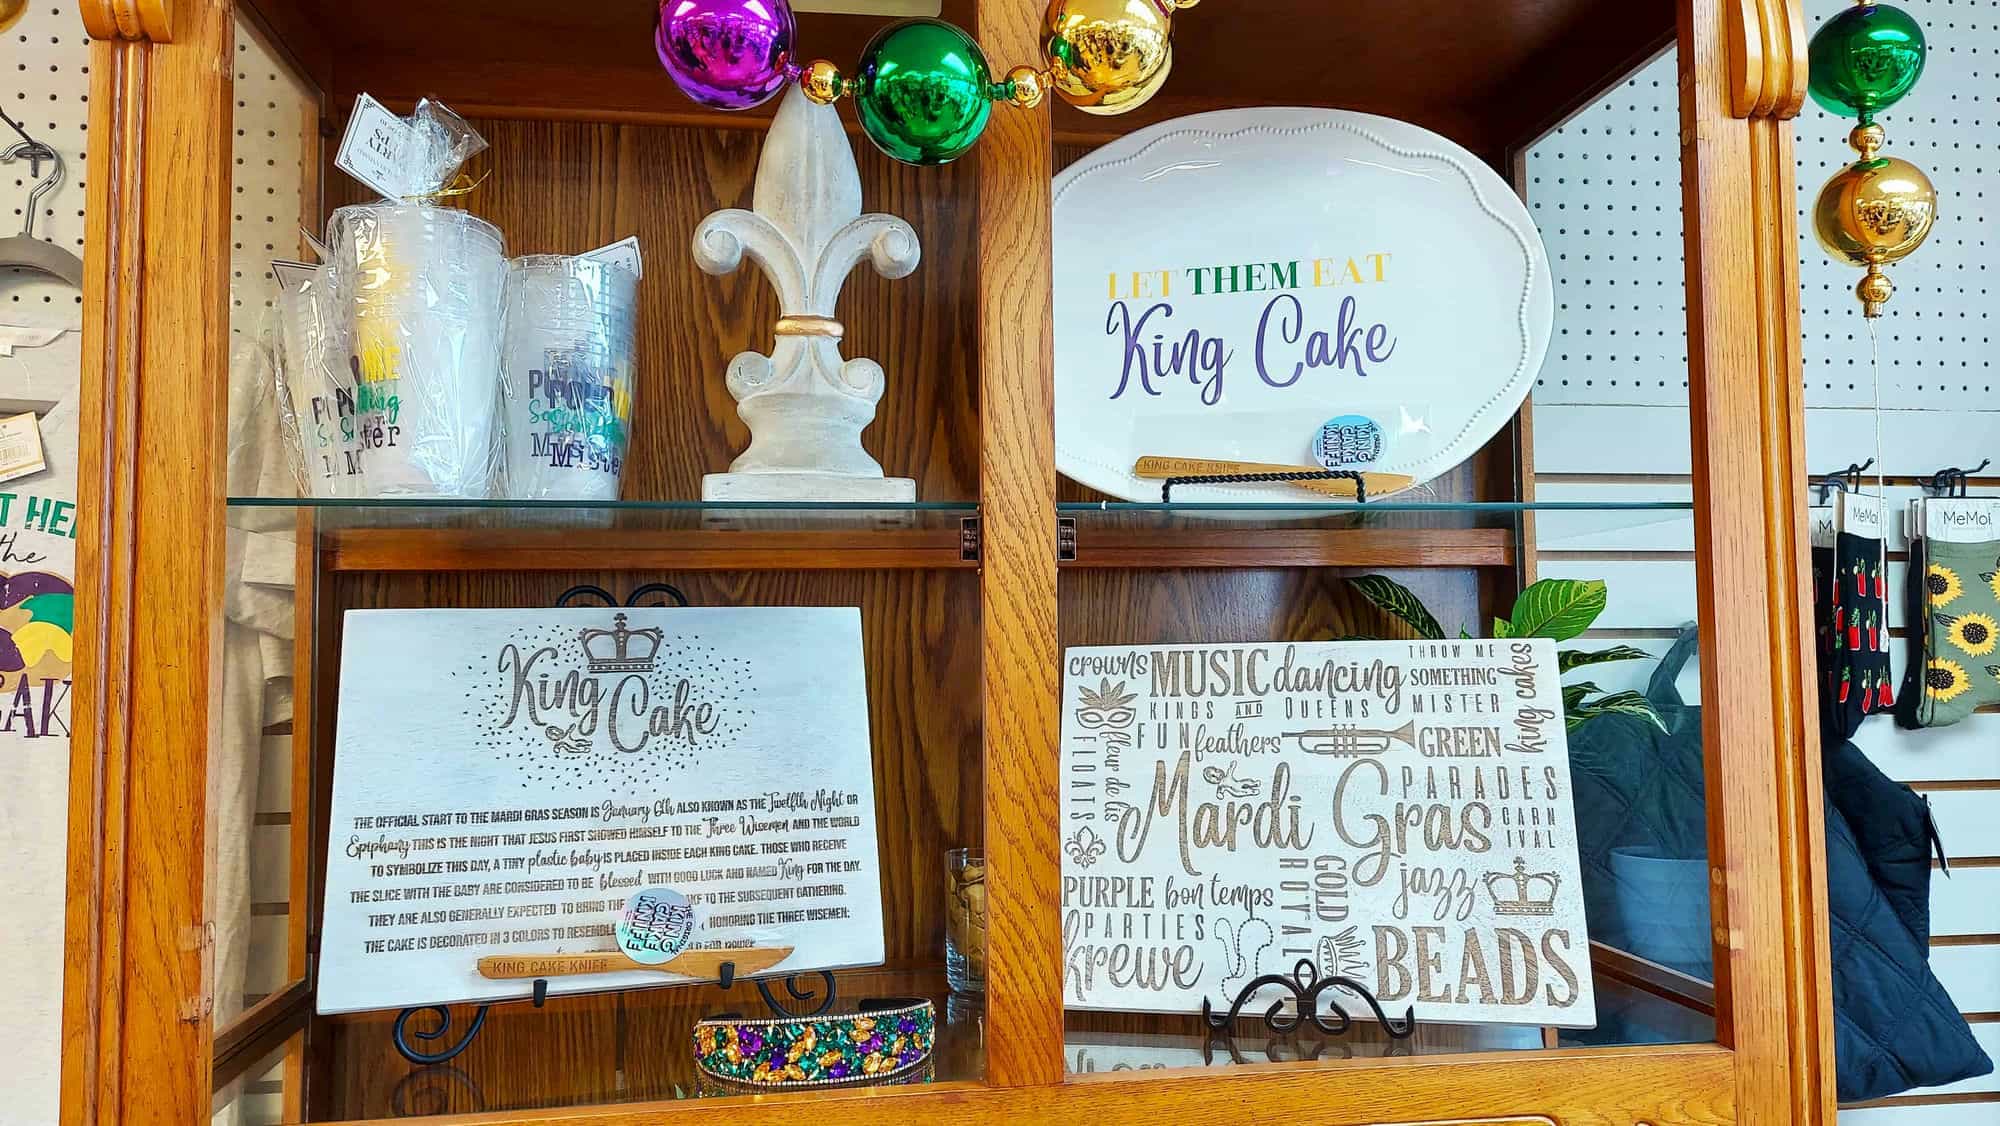 LET THEM EAT
King Cake
KING CAKE KNIFE
THE ORIGINAL
KING
CAKE
KNIFE
MeMoi
MeMoi
T HE
the
King
Cake
THE OFFICIAL START TO THE MARDI GRAS SEASON IS January 6th ALSO KNOWN AS THE Twelfth Night OR
Epiphany THIS IS THE NIGHT THAT JESUS FIRST SHOWED HIMSELF TO THE Three Wisemen AND THE WORLD
TO SYMBOLIZE THIS DAY, A TINY plastic baby IS PLACED INSIDE EACH KING CAKE. THOSE WHO RECEIVE
THE SLICE WITH THE BABY ARE CONSIDERED TO BE blessed WITH GOOD LUCK AND NAMED King FOR THE DAY.
THEY ARE ALSO GENERALLY EXPECTED TO BRING THE TO THE SUBSEQUENT GATHERING.
THE CAKE IS DECORATED IN 3 COLORS TO RESEMBLE HONORING THE THREE WISEMEN:
FOR power
KING CAKE KNIFE
KING
CAKE
KNIFE
crowns MUSIC dancing THROW ME
SOMETHING
MISTER
king cakes
KINGS AND QUEENS
FUN feathers GREEN
FLOATS
fleur de lis
Mardi Gras
PARADES
CARN
IVAL
PURPLE bon temps
ROYALTY
GOLD
jazz
PARTIES
krewe
BEADS